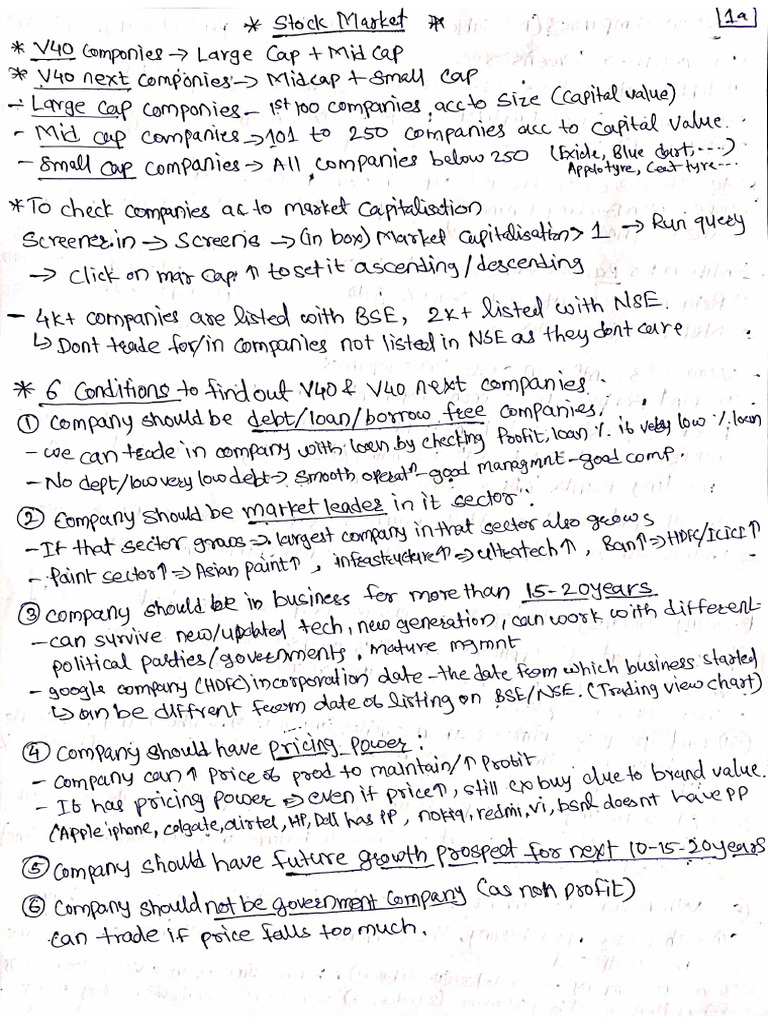 * Stock Market *
1a
* V40 Componies → Large Cap + Mid Cap
* V40 next Componies → Midcap + Small Cap
- Large Cap componies - 1st 100 companies, acc to Size (Capital value)
- Mid cap companies → 101 to 250 companies acc to Capital Value.
- Small cap companies → All companies below 250 (Exide, Blue dart, ....)
Appolo tyre, Ceat tyre...
* To check companies ac to Market Capitalisation
Screener.in → Screens → (in box) Market Capitalisation > 1 → Run query
→ Click on mar Cap. ↑ to set it ascending/descending
- 4k+ companies are listed with BSE, 2k+ listed with NSE.
↳ Dont trade for/in companies not listed in NSE as they dont care
* 6 Conditions to find out V40 & V40 next companies.
① Company should be debt/loan/borrow free companies.
- we can trade in company with loan by checking Profit, loan %. if very low % loan
- No dept/low very low debt → Smooth operatn - good managmnt - good comp.
② Company should be market leader in it sector:
- If that sector grows → largest company in that sector also grows
- Paint sector ↑ ⇒ Asian paint ↑, infrastructure ↑ ⇒ ultratech ↑, Ban ↑ ⇒ HDFC/ICICI ↑
③ company should be in business for more than 15-20 years
- can survive new/updated tech, new generation, can work with different
political parties/governments, mature mgmnt
- google company (HDFC) incorporation date - the date from which business started
↳ can be diffrent from date of listing on BSE/NSE. (Trading view chart)
④ Company should have pricing power:
- Company can ↑ price of prod to maintain/↑ Profit
- If has pricing power ⇒ even if price ↑, still cx buy due to brand value.
(Apple iphone, colgate, airtel, HP, Dell has PP, nokia, redmi, vi, bsnl doesnt have PP
⑤ Company should have future growth prospect for next 10-15-20 years
⑥ Company should not be government company (as non profit)
can trade if price falls too much.